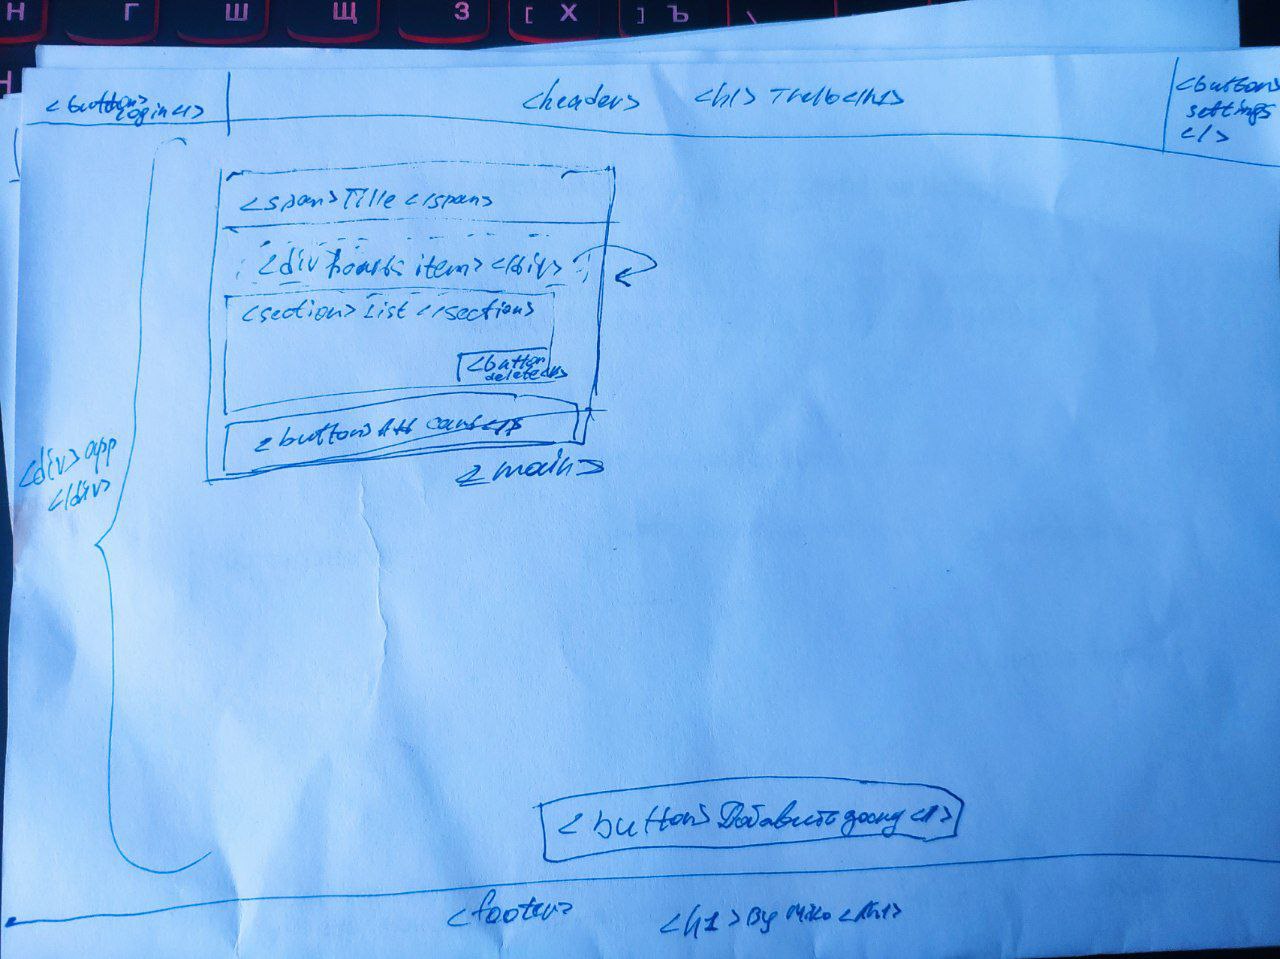 Н Г Ш Щ З [ Х ] Ъ \
Н
<button>
login</>
<header> <h1> Trello</h1>
<button>
settings
</>
<span>Title</span>
<div boards item></div>
<section>List</section>
<button
delete</>
<button>Add card</>
<main>
<div>app
</div>
<button>Добавить доску</>
<footer> <h1>By Miko</h1>